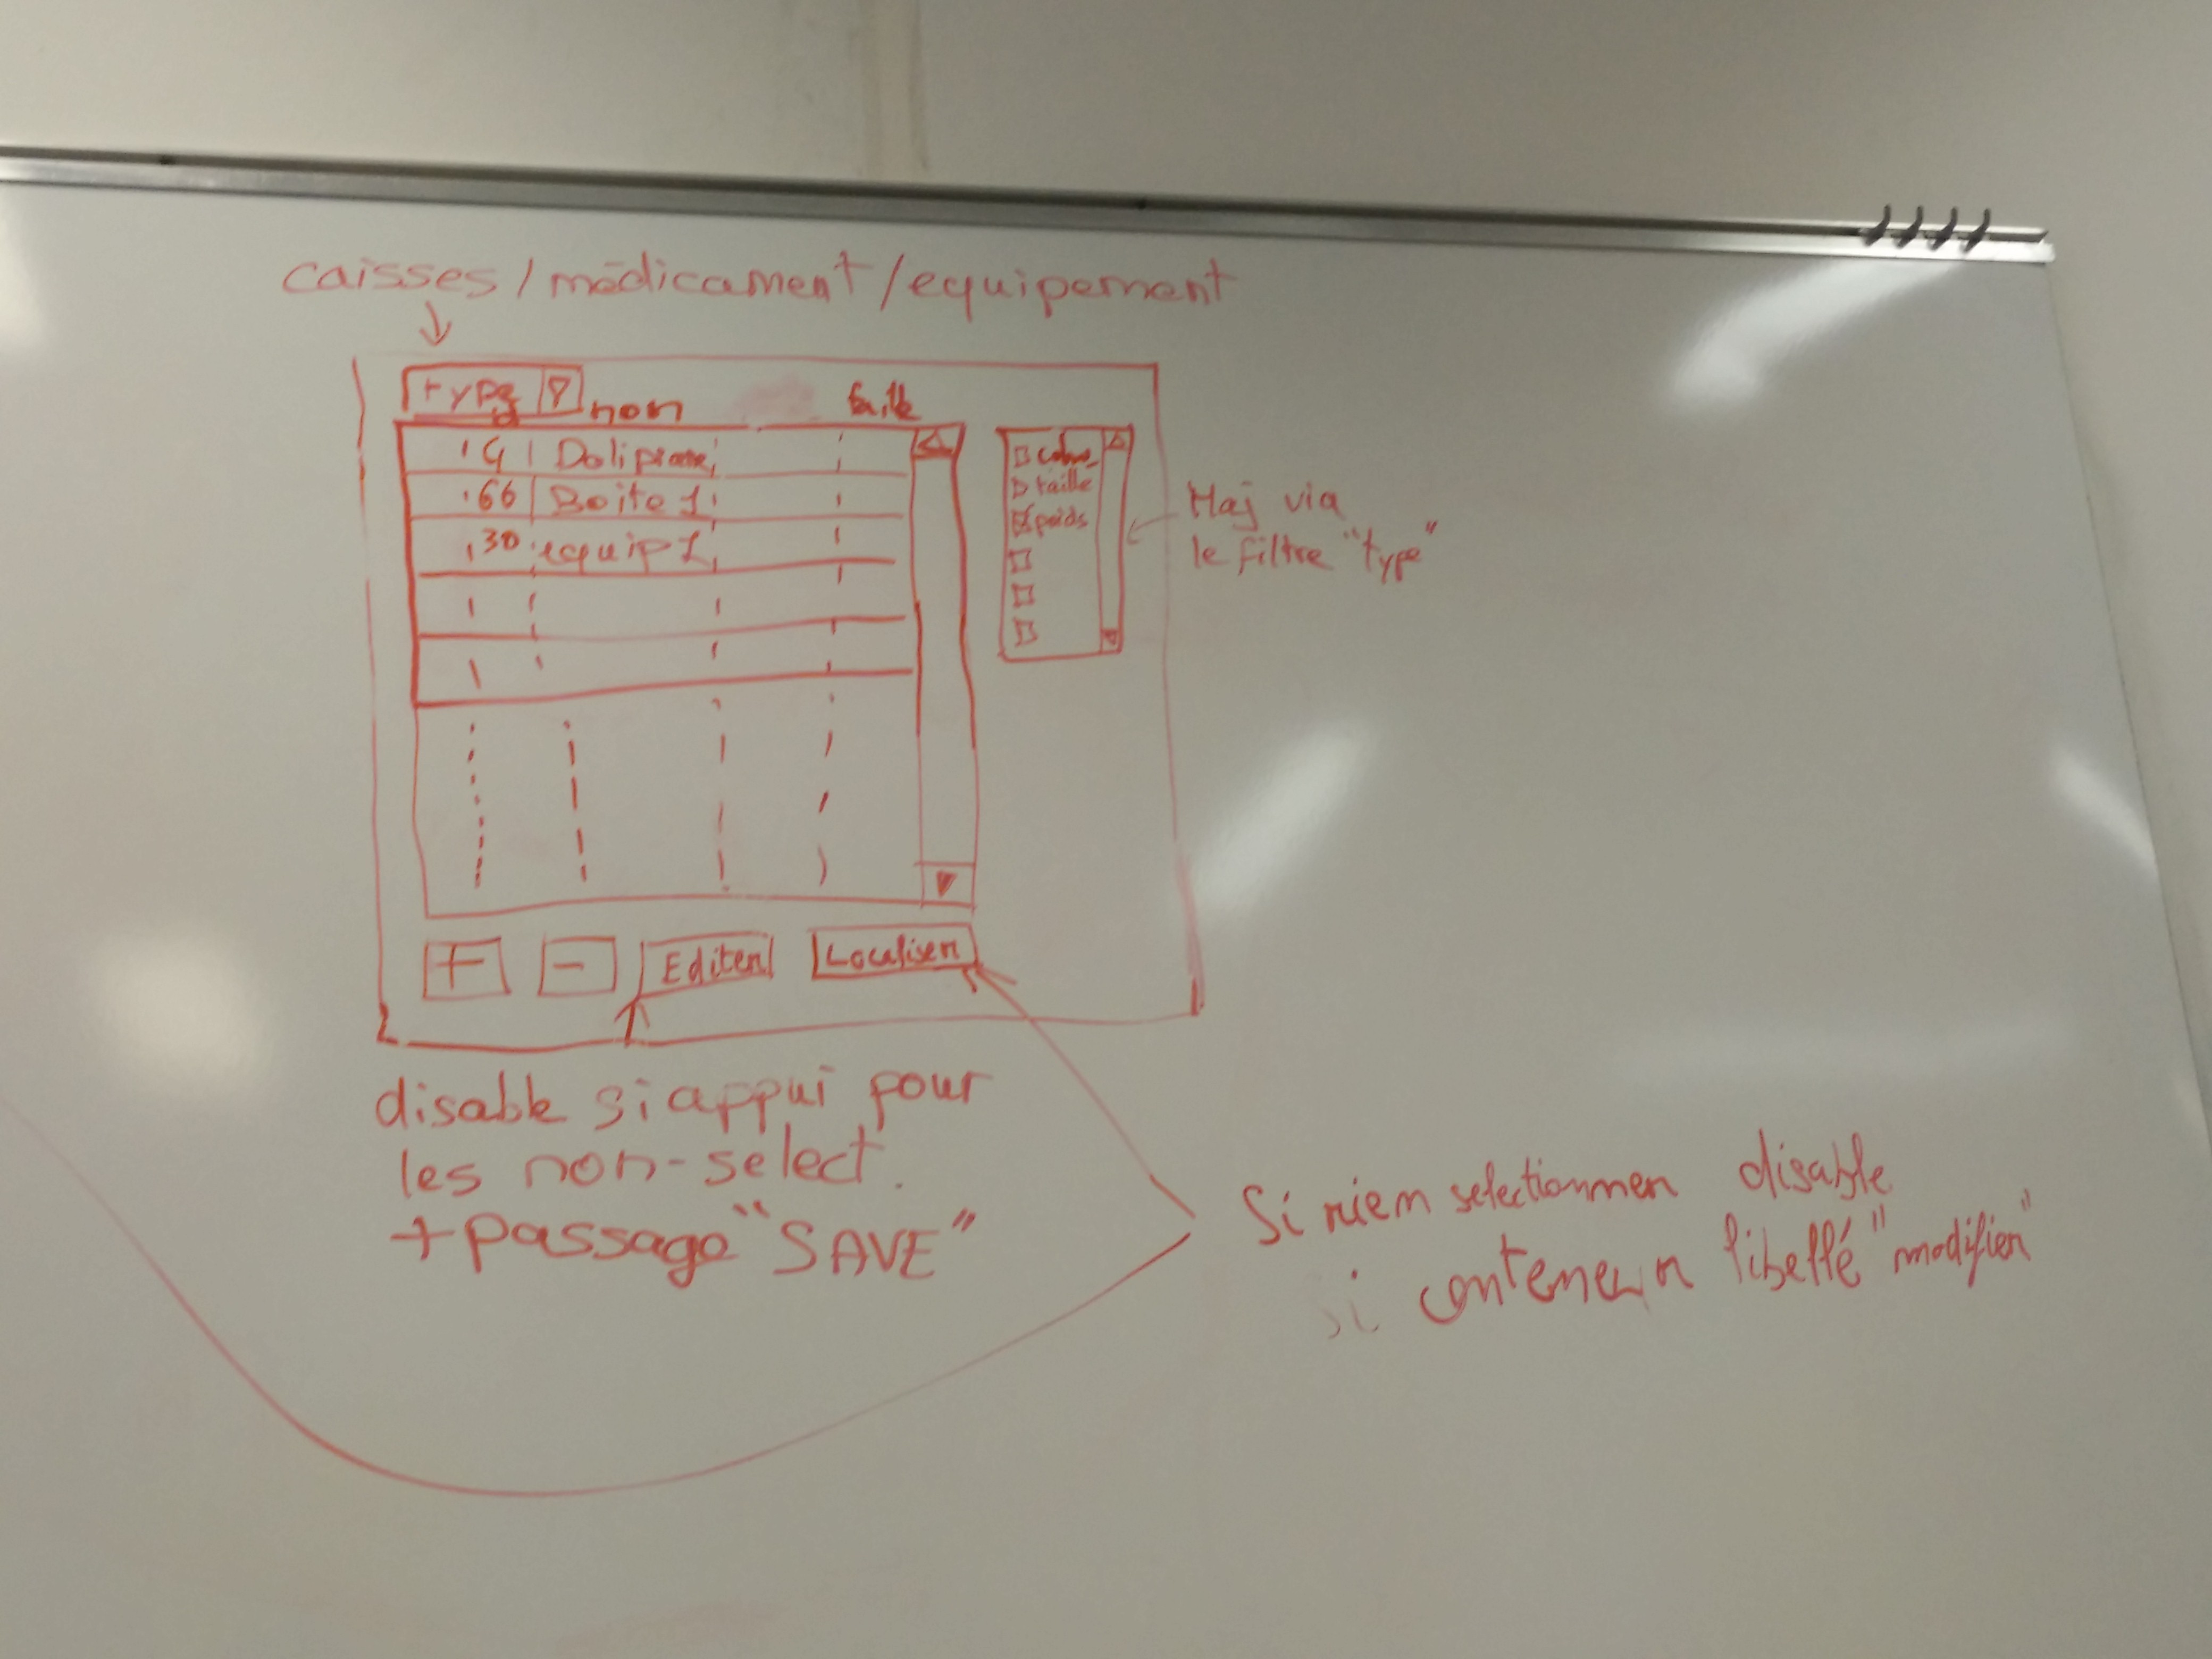 caisses / médicament / equipement
type
nom taille
4 Doliprane
66 Boite 1
30 equip 1
taille
poids
Maj via
le filtre "type"
+ - Editer Localiser
disable si appui pour
les non-select.
+ passage "SAVE"
Si rien selectionner disable
si conteneur libellé "modifier"